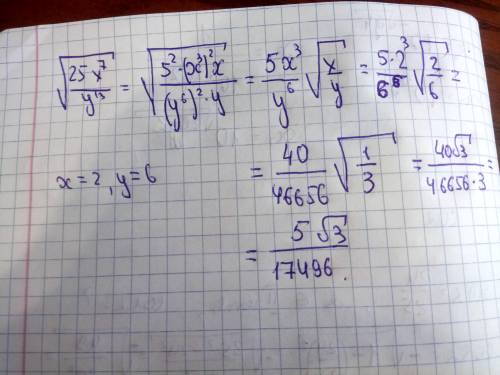 √(25x⁷/y¹³) = √(5²·(x³)²x/(y⁶)²·y) = 5x³/y⁶ √(x/y) = 5·2³/6⁶ √(2/6) =
x = 2, y = 6
= 40/46656 √(1/3) = 40√3/46656·3 =
= 5√3/17496.